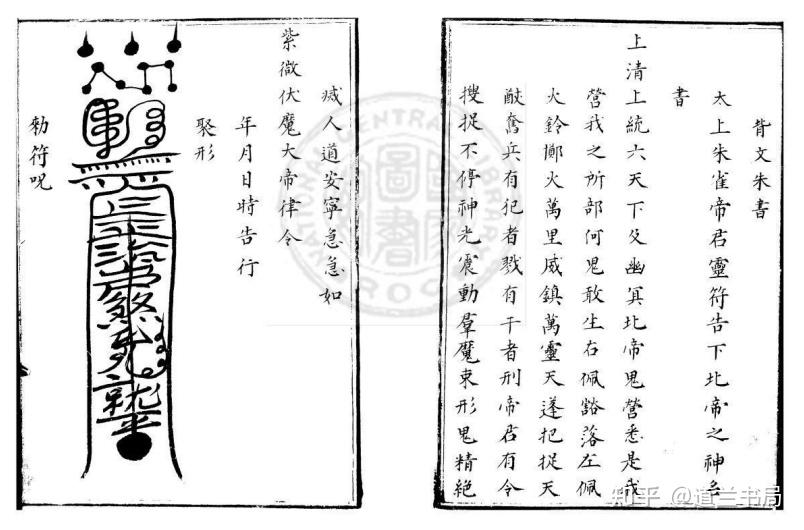 背文朱書
太上朱雀帝君靈符告下北帝之神
書
上清上統六天下及幽冥北帝鬼營悉是我
營我之所部何鬼敢生右佩豁落左佩
火鈴擲火萬里威鎮萬靈天蓬把捉天
猷奮兵有犯者戮有干者刑帝君有令
搜捉不停神光震動羣魔束形鬼精絕
滅人道安寧急急如
紫微伏魔大帝律令
年月日時告行
聚形
勅符呪
知乎 @道兰书局